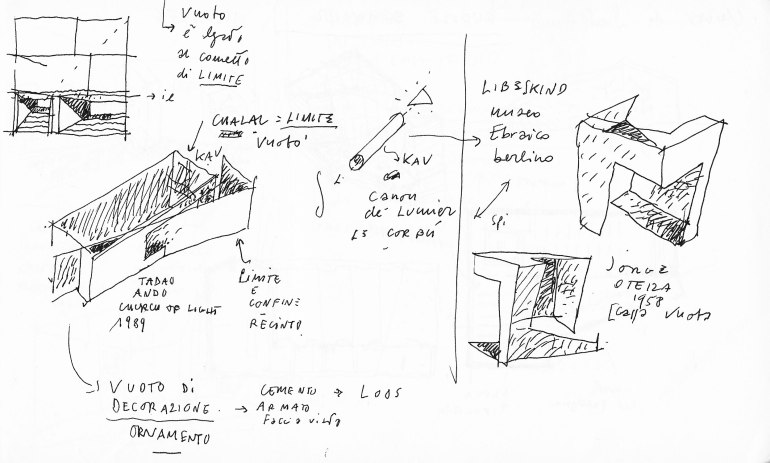 VUOTO
è legato
al concetto
di LIMITE
CHALAL = LIMITE
"VUOTO"
KAV
TADAO
ANDO
CHURCH OF LIGHT
1989
LIMITE
E
CONFINE
RECINTO
KAV
CANON
de LUMIER
LE CORBU
LIBESKIND
museo
Ebraico
berlino
JORGE
OTEIZA
1958
[CASSA VUOTA
VUOTO DI
DECORAZIONE
ORNAMENTO
CEMENTO → LOOS
ARMATO
Faccia vista